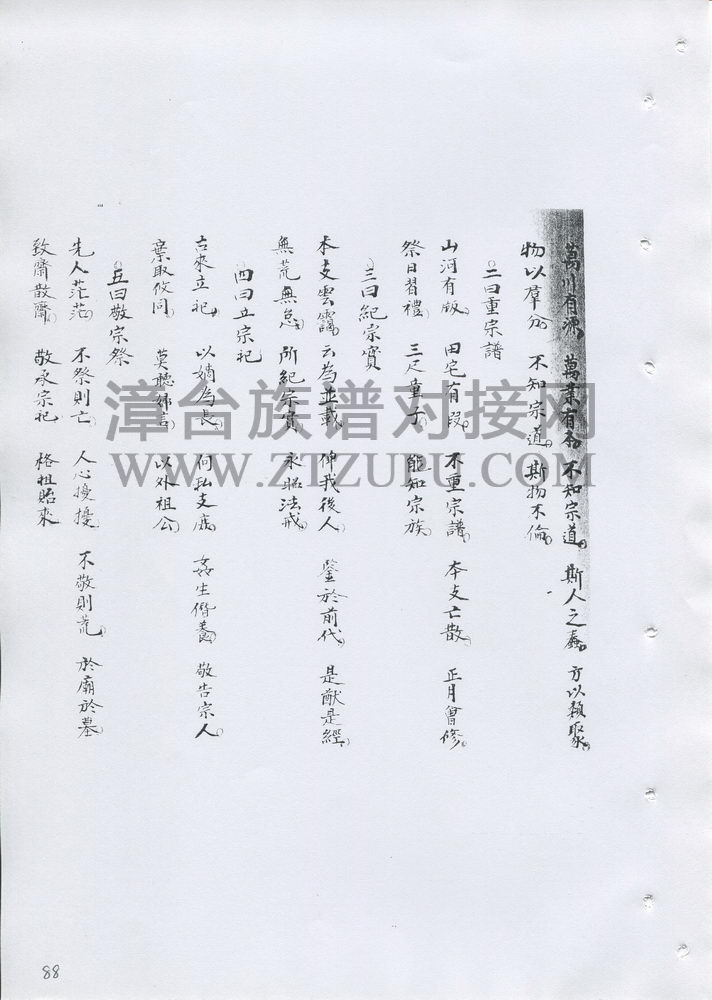 萬川有源。萬葉有初。不知宗道。斯人之蠢。方以類聚。
物以羣分。不知宗道。斯物不倫。
二曰重宗譜
山河有版。田宅有段。不重宗譜。本支亡散。正月會修。
祭日習禮。三尺童子。能知宗族。
三曰紀宗實
本支雲靄。云為並載。俾我後人。鑒於前代。是猷是經。
無荒無怠。所紀宗實。永昭法戒。
四曰立宗祀
古來立祀。以嫡為長。何私支庶。姦生僭養。敬告宗人。
棄取攸同。莫聽婦言。以外祖公。
五曰敬宗祭
先人茫茫。不祭則亡。人心擾擾。不敬則荒。於廟於墓。
致齋散齋。敬承宗祀。格祖貽來
漳台族谱对接网
WWW.ZTZUPU.COM
88